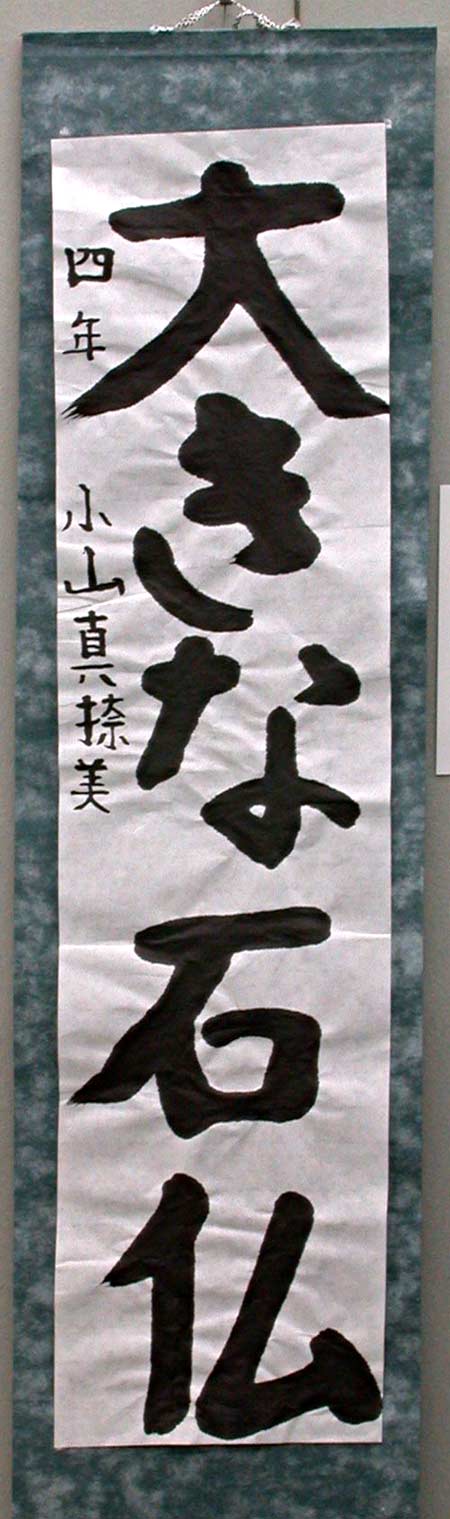 大きな石仏
四年 小山真捺美